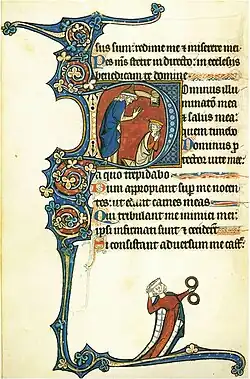 sus sum: redime me & miserere mei.
Pes m̅s stetit in directo: in ecclesiis
benedicam te domine
Dominus illu
minatio̅ mea
& salus mea:
quem timebo
Dominus p̲
tector uite mee:
a quo trepidabo
Dum appropiant sup̲ me nocen
tes: ut edant carnes meas
Qui tribulant me inimici mei:
ipsi infirmati sunt & ceciderunt
Si consistant aduersum me cast̅